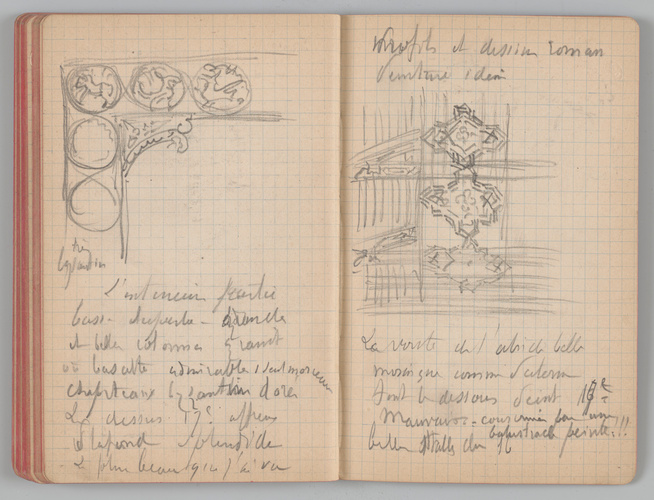 très
byzantin
L'intérieur partie
basse superbe - grandes
et belles colonnes granit
ou basalte admirables seul morceau
chapiteaux byzantin dorés
Le dessus 17e affreux
plafond splendide
Le plus beau que j'ai vu
profils et dessin roman
Peinture idem
La voute de l'abside belle
mosaique comme Palerme
tout le dessous peint 18e
mauvais -
balustrade peinte!!
belles stalles du 16